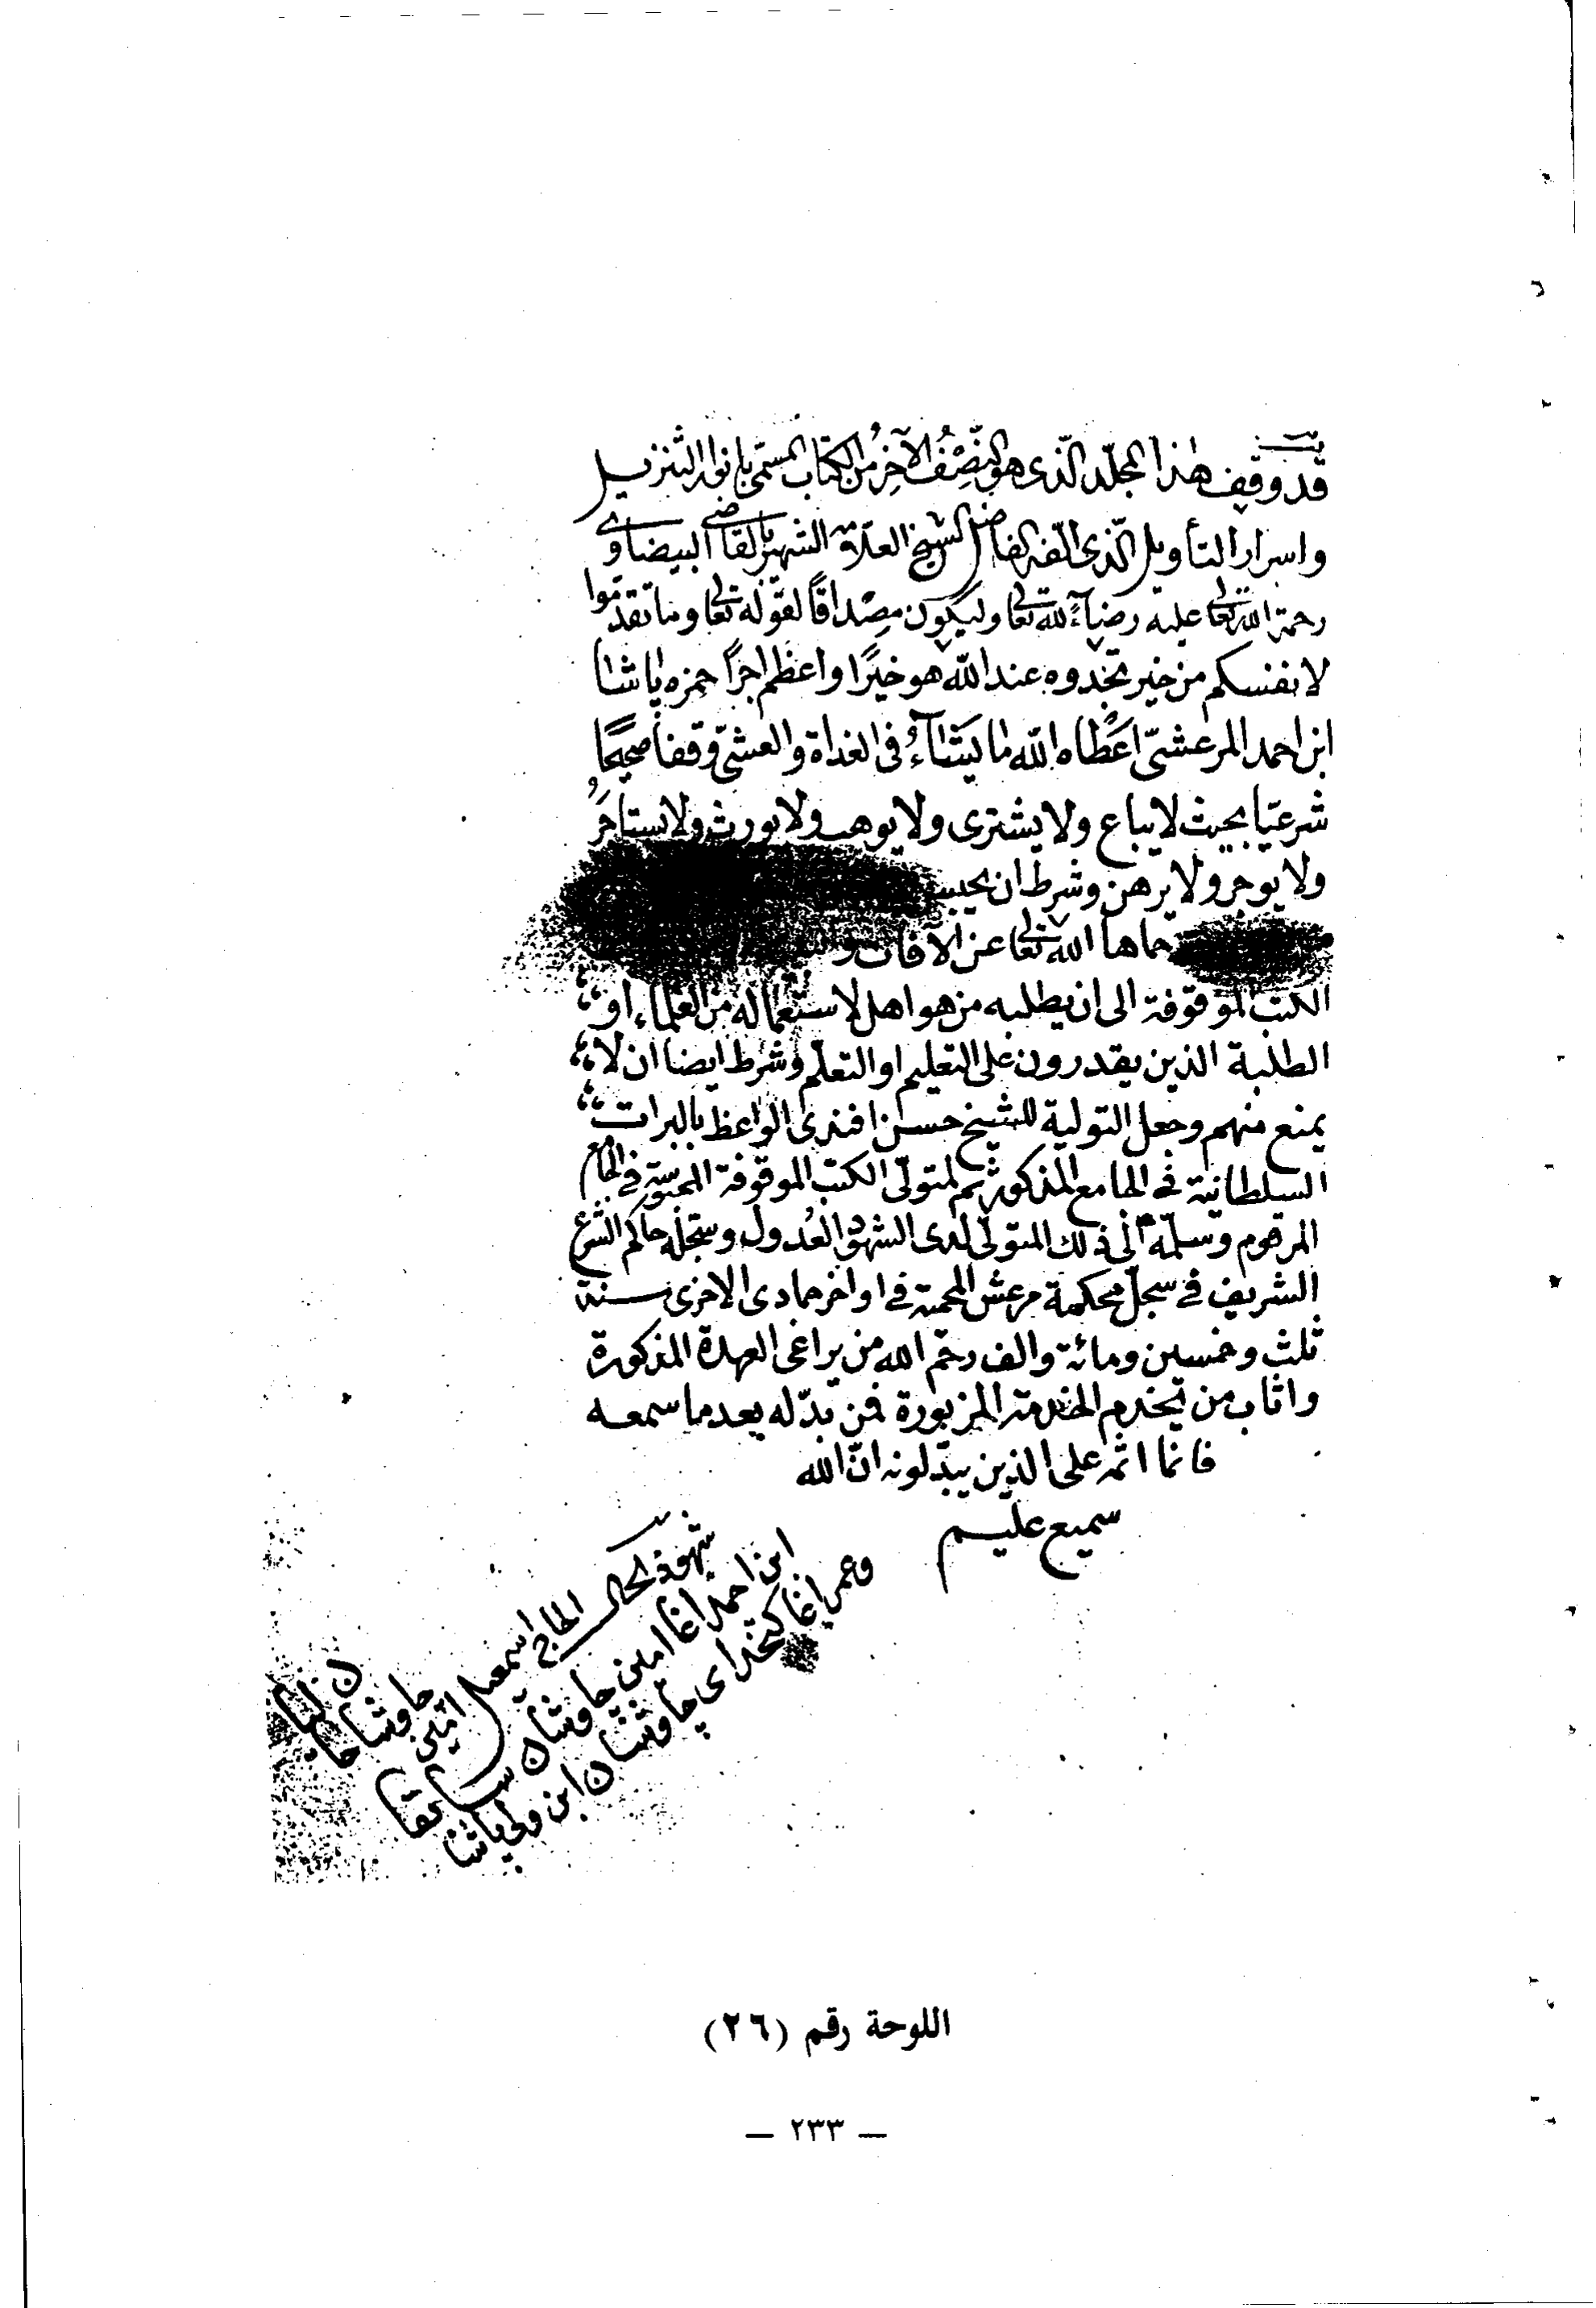 قد وقف هذا المجلّد الّذى هو النّصف الآخر من الكتاب المسمّى بانوار التنزيل
واسرار التأويل الّذى الّفه الفاضل الشيخ العلامة الشهير بالقاضى البيضاوى
رحمة الله تعالى عليه رضاءً لله تعالى وليكون مِصْداقًا لقوله تعالى وما تقدّموا
لانفسكم من خير تجدوه عند الله هو خيرًا واعظم اجرًا حمزه پاشا
ابن احمد المرعشىّ اعطاه الله ما يشاءُ فى الغداة والعشىّ وقفا صحيحًا
شرعيّا بحيث لا يباع ولا يشترى ولا يوهب ولا يورث ولا يستاجرُ
ولا يوجر ولا يرهن وشرط ان يحبس
حماها الله تعالى عن الآفات و
الكتب الموقوفة الى ان يطلبه من هو اهل لاستعماله من العلماء او
الطلبة الذين يقدرون على التعليم او التعلّم وشرط ايضا ان لا
يمنع منهم وجعل التولية للشيخ حسن افندى الواعظ بالبرات
السلطانية فى الجامع المذكور ثم لمتولّى الكتب الموقوفة المحبوسة فى الجامع
المرقوم وسلّمه الى ذلك المتولّى لدى الشهود العُدول وسجّله حاكم الشرع
الشريف فى سجلّ محكمة مرعش المحمية فى اواخر جمادى الاخرى سنة
ثلث وخمسين ومائة والف رحم الله من يراعى العهدة المذكورة
واثاب من يخدم الخدمة المزبورة فمن بدّله بعد ما سمعه
فانما اثمه على الذين يبدّلونه انّ الله
سميع عليم
شهود الحال
الحاج اسمعيل
امين چاوشان
ابن احمد اغا امين چاوشان سابقا
وعمر اغا كتخداى چاوشان ابن ولى پاشا
اللوحة رقم (٢٦)
— ٢٣٣ —